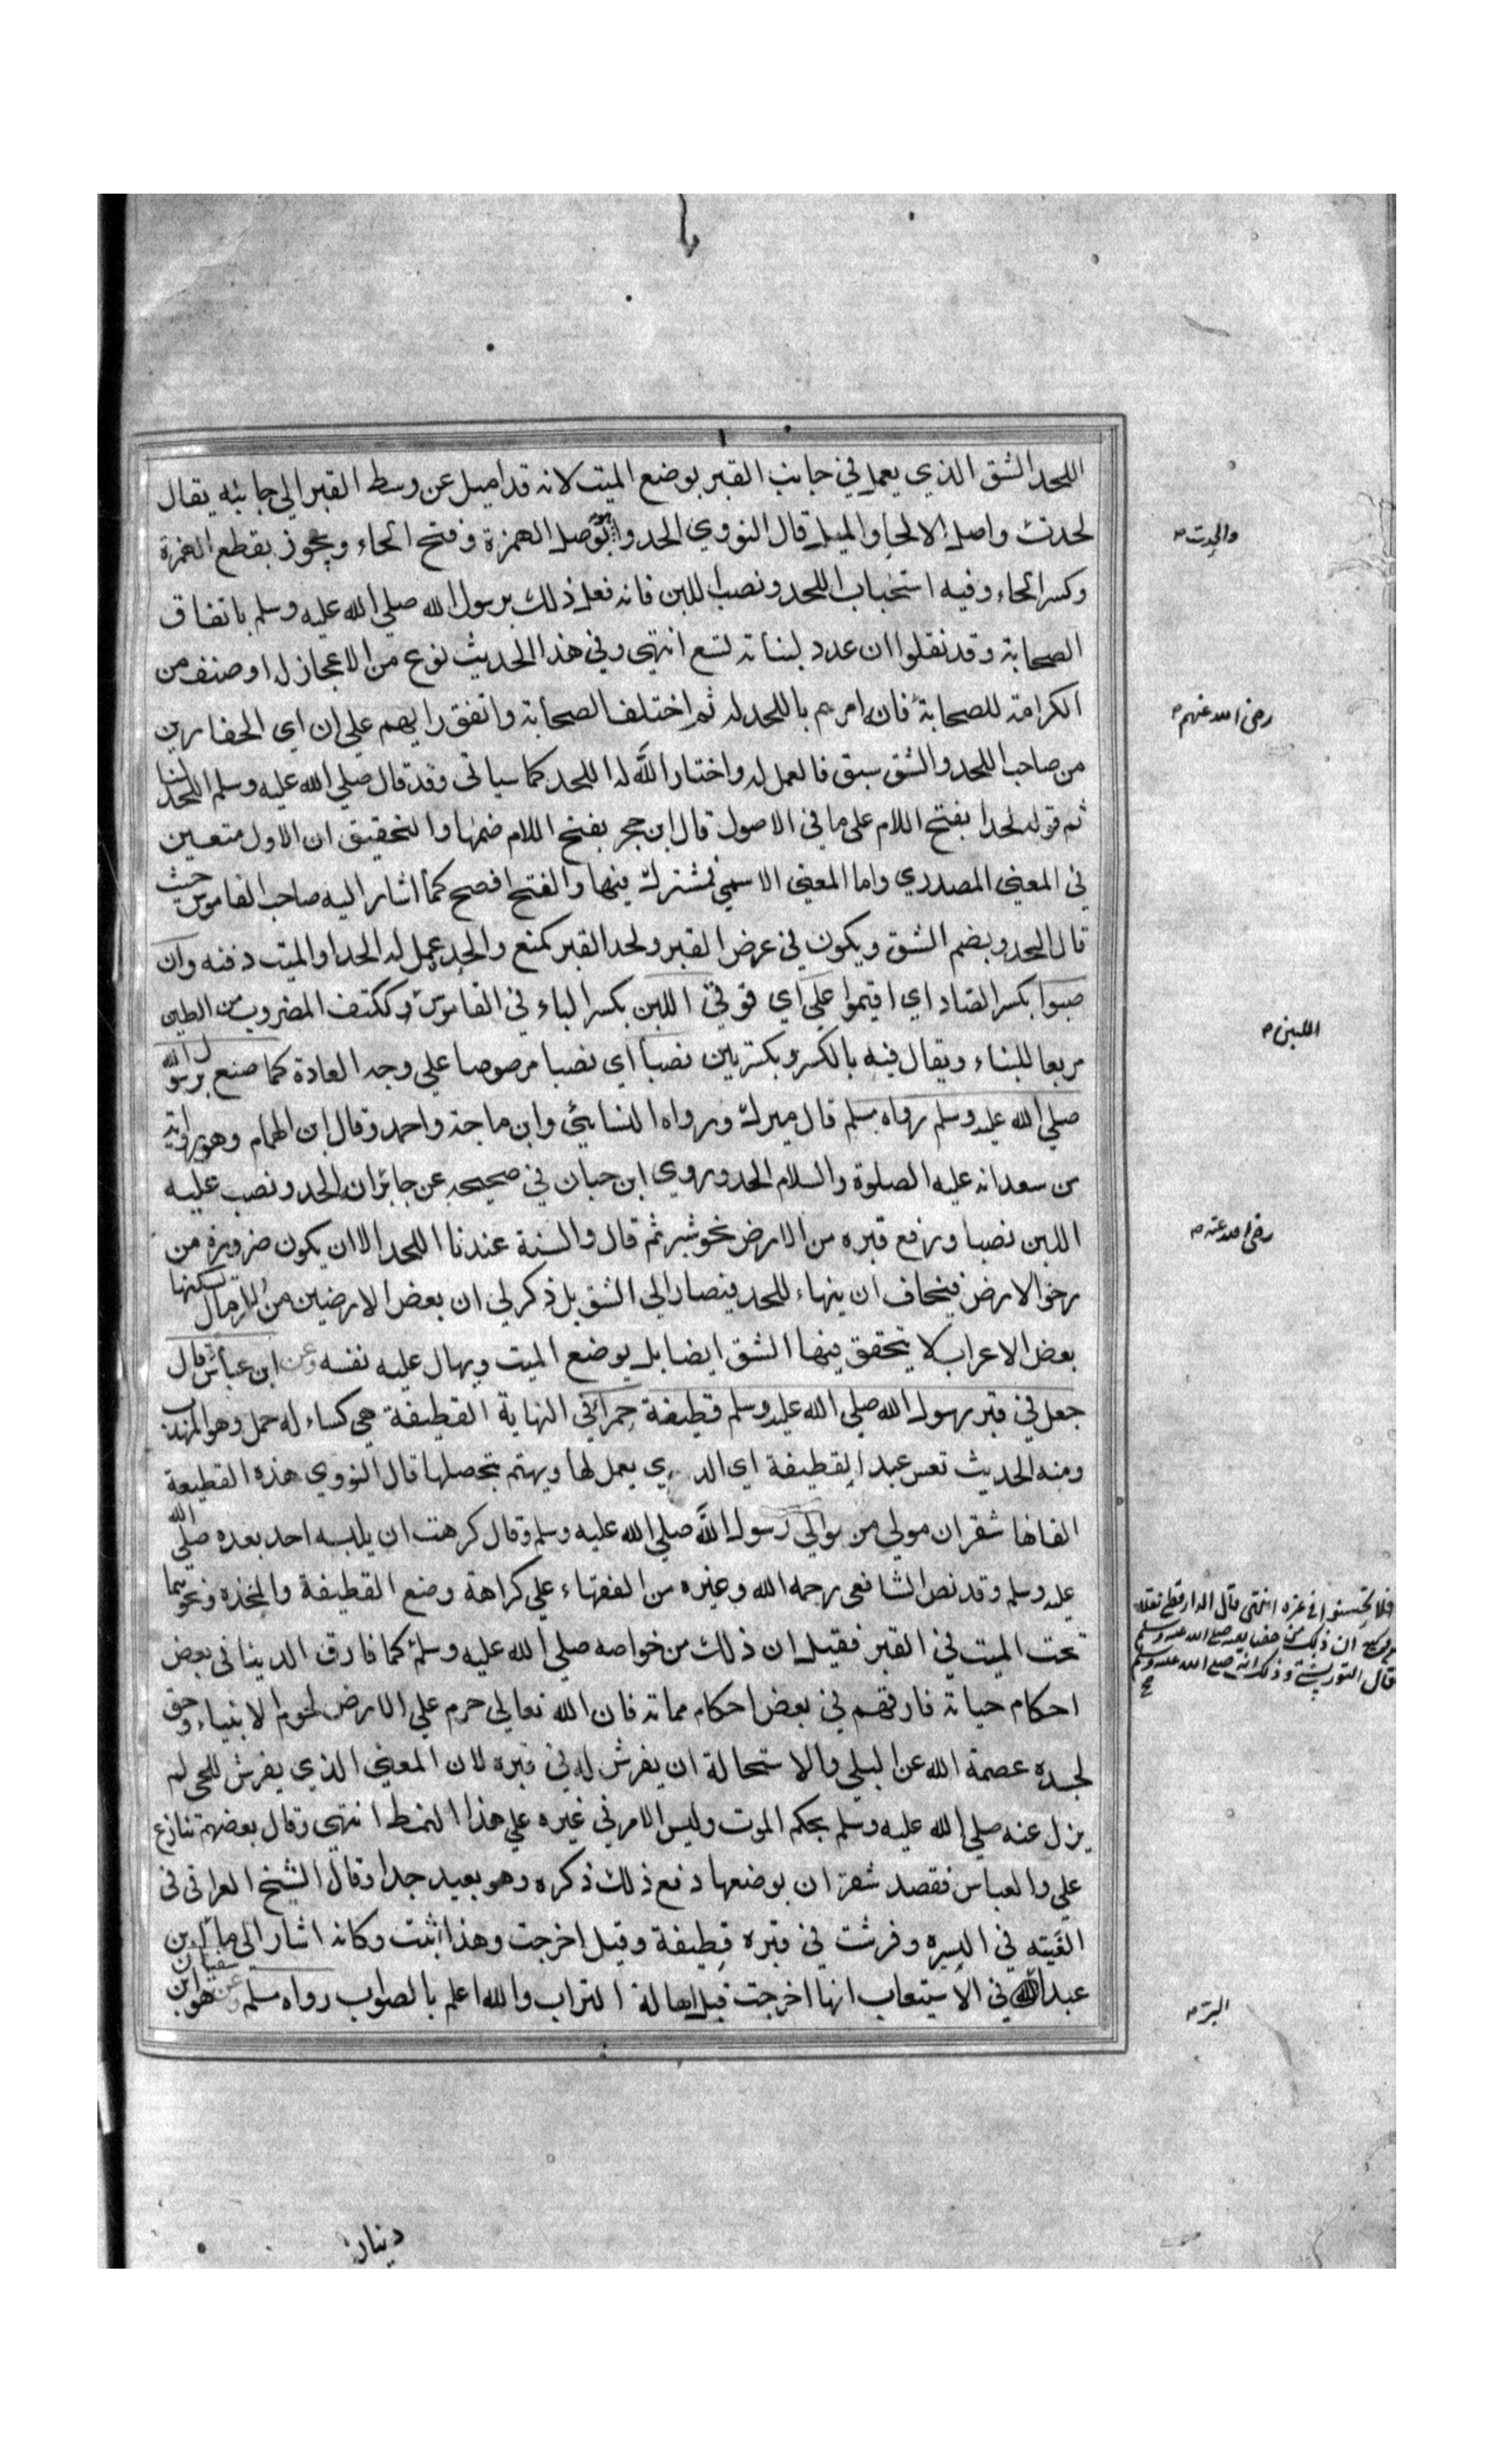 اللحد الشق الذي يعمل في جانب القبر بوضع الميت لانه قد اميل عن وسط القبر الي جانبه يقال
لحدت واصل الالحاد الميل قال النووي الحدوا بوصل الهمزة وفتح الحاء ويجوز بقطع الهمزة
وكسر الحاء وفيه استحباب اللحد ونصب اللبن فانه فعل ذلك برسول الله صلي الله عليه وسلم باتفاق
الصحابة وقد نقلوا ان عدد لبناته تسع انتهى وفي هذا الحديث نوع من الاعجاز له او صنف من
الكرامة للصحابة فانه امرهم باللحد له ثم اختلف الصحابة واتفق رايهم علي ان اي الحفارين
من صاحب اللحد والشق سبق فالعمل له واختار الله له اللحد كما سياتى وقد قال صلي الله عليه وسلم اللحد لنا
ثم قوله لحدا بفتح اللام على ما في الاصول قال ابن حجر بفتح اللام ضمها والتحقيق ان الاول متعين
في المعني المصدري واما المعني الاسمي فمشترك بينها والفتح افصح كما اشار اليه صاحب القاموس حيث
قال اللحد وبضم الشق ويكون في عرض القبر ولحد القبر كمنع والحد عمل له لحدا والميت دفنه وان
صبوا بكسر الصاد اي اقيموا علي اي فوقي اللبن بكسر الباء في القاموس وككتف المضروب من الطين
مربعا للبناء ويقال فيه بالكسر وبكسرتين نصبا اي نصبا مرصوصا علي وجه العادة كما صنع برسول الله
صلي الله عليه وسلم رواه مسلم قال ميرك ورواه النسائي وابن ماجة واحمد وقال ابن الهمام وهو رواية
من سعد انه عليه الصلوة والسلام الحد وروي ابن حبان في صحيحه عن جابر انه الحد ونصب عليه
اللبن نصبا ورفع قبره من الارض نحو شبر ثم قال والسنة عندنا اللحد الا ان يكون ضرورة من
رخو الارض فيخاف ان ينهاء اللحد فيصار الي الشق بل ذكر لي ان بعض الارضين من الرمال يسكنها
بعض الاعراب لا يتحقق فيها الشق ايضا بل يوضع الميت ويهال عليه نفسه وعن ابن عباس قال
جعل في قبر رسول الله صلي الله عليه وسلم قطيفة حمرا في النهاية القطيفة هي كساء له خمل وهو المهدب
ومنه الحديث تعس عبد القطيفة اي الذي يعمل لها ويهتم بتحصلها قال النووي هذه القطيعة
القاها شقران مولي من موالي رسول الله صلي الله عليه وسلم وقال كرهت ان يلبسه احد بعده صلي الله
عليه وسلم وقد نص الشافعى رحمه الله وغيره من الفقهاء علي كراهة وضع القطيفة والمخذه ونحوهما
تحت الميت في القبر فقيل ان ذلك من خواصه صلي الله عليه وسلم كما فارق الدينا في بعض
احكام حياته فارقهم في بعض احكام مماته فان الله تعالي حرم علي الارض لحوم الانبياء وحق
لجسده عصمة الله عن البلي والاستحالة ان يفرش له في قبره لان المعني الذي يفرش للحي لم
يزل عنه صلي الله عليه وسلم بحكم الموت وليس الامر في غيره علي هذا النمط انتهى وقال بعضهم تنازع
علي والعباس فقصد شقران بوضعها دفع ذلك ذكره وهو بعيد جدا وقال الشيخ العراقى في
الفيته في السيره وفرشت في قبره قطيفة وقيل اخرجت وهذا اثبت وكانه اشار الى ما قال ابن
عبد الله في الاستيعاب انها اخرجت قبل اهالة التراب والله اعلم بالصواب رواه مسلم وعن سفيان هو ابن
والحدت
رضى الله عنهم
اللبن
رضي الله عنه
فلا تحسنوا في غره انتهى قال الدارقطني نقلا
ان ذلك من خصايصه صلى الله عليه وسلم
قال التوربشتي وذلك انه صلى الله عليه وسلم
البر
دينار